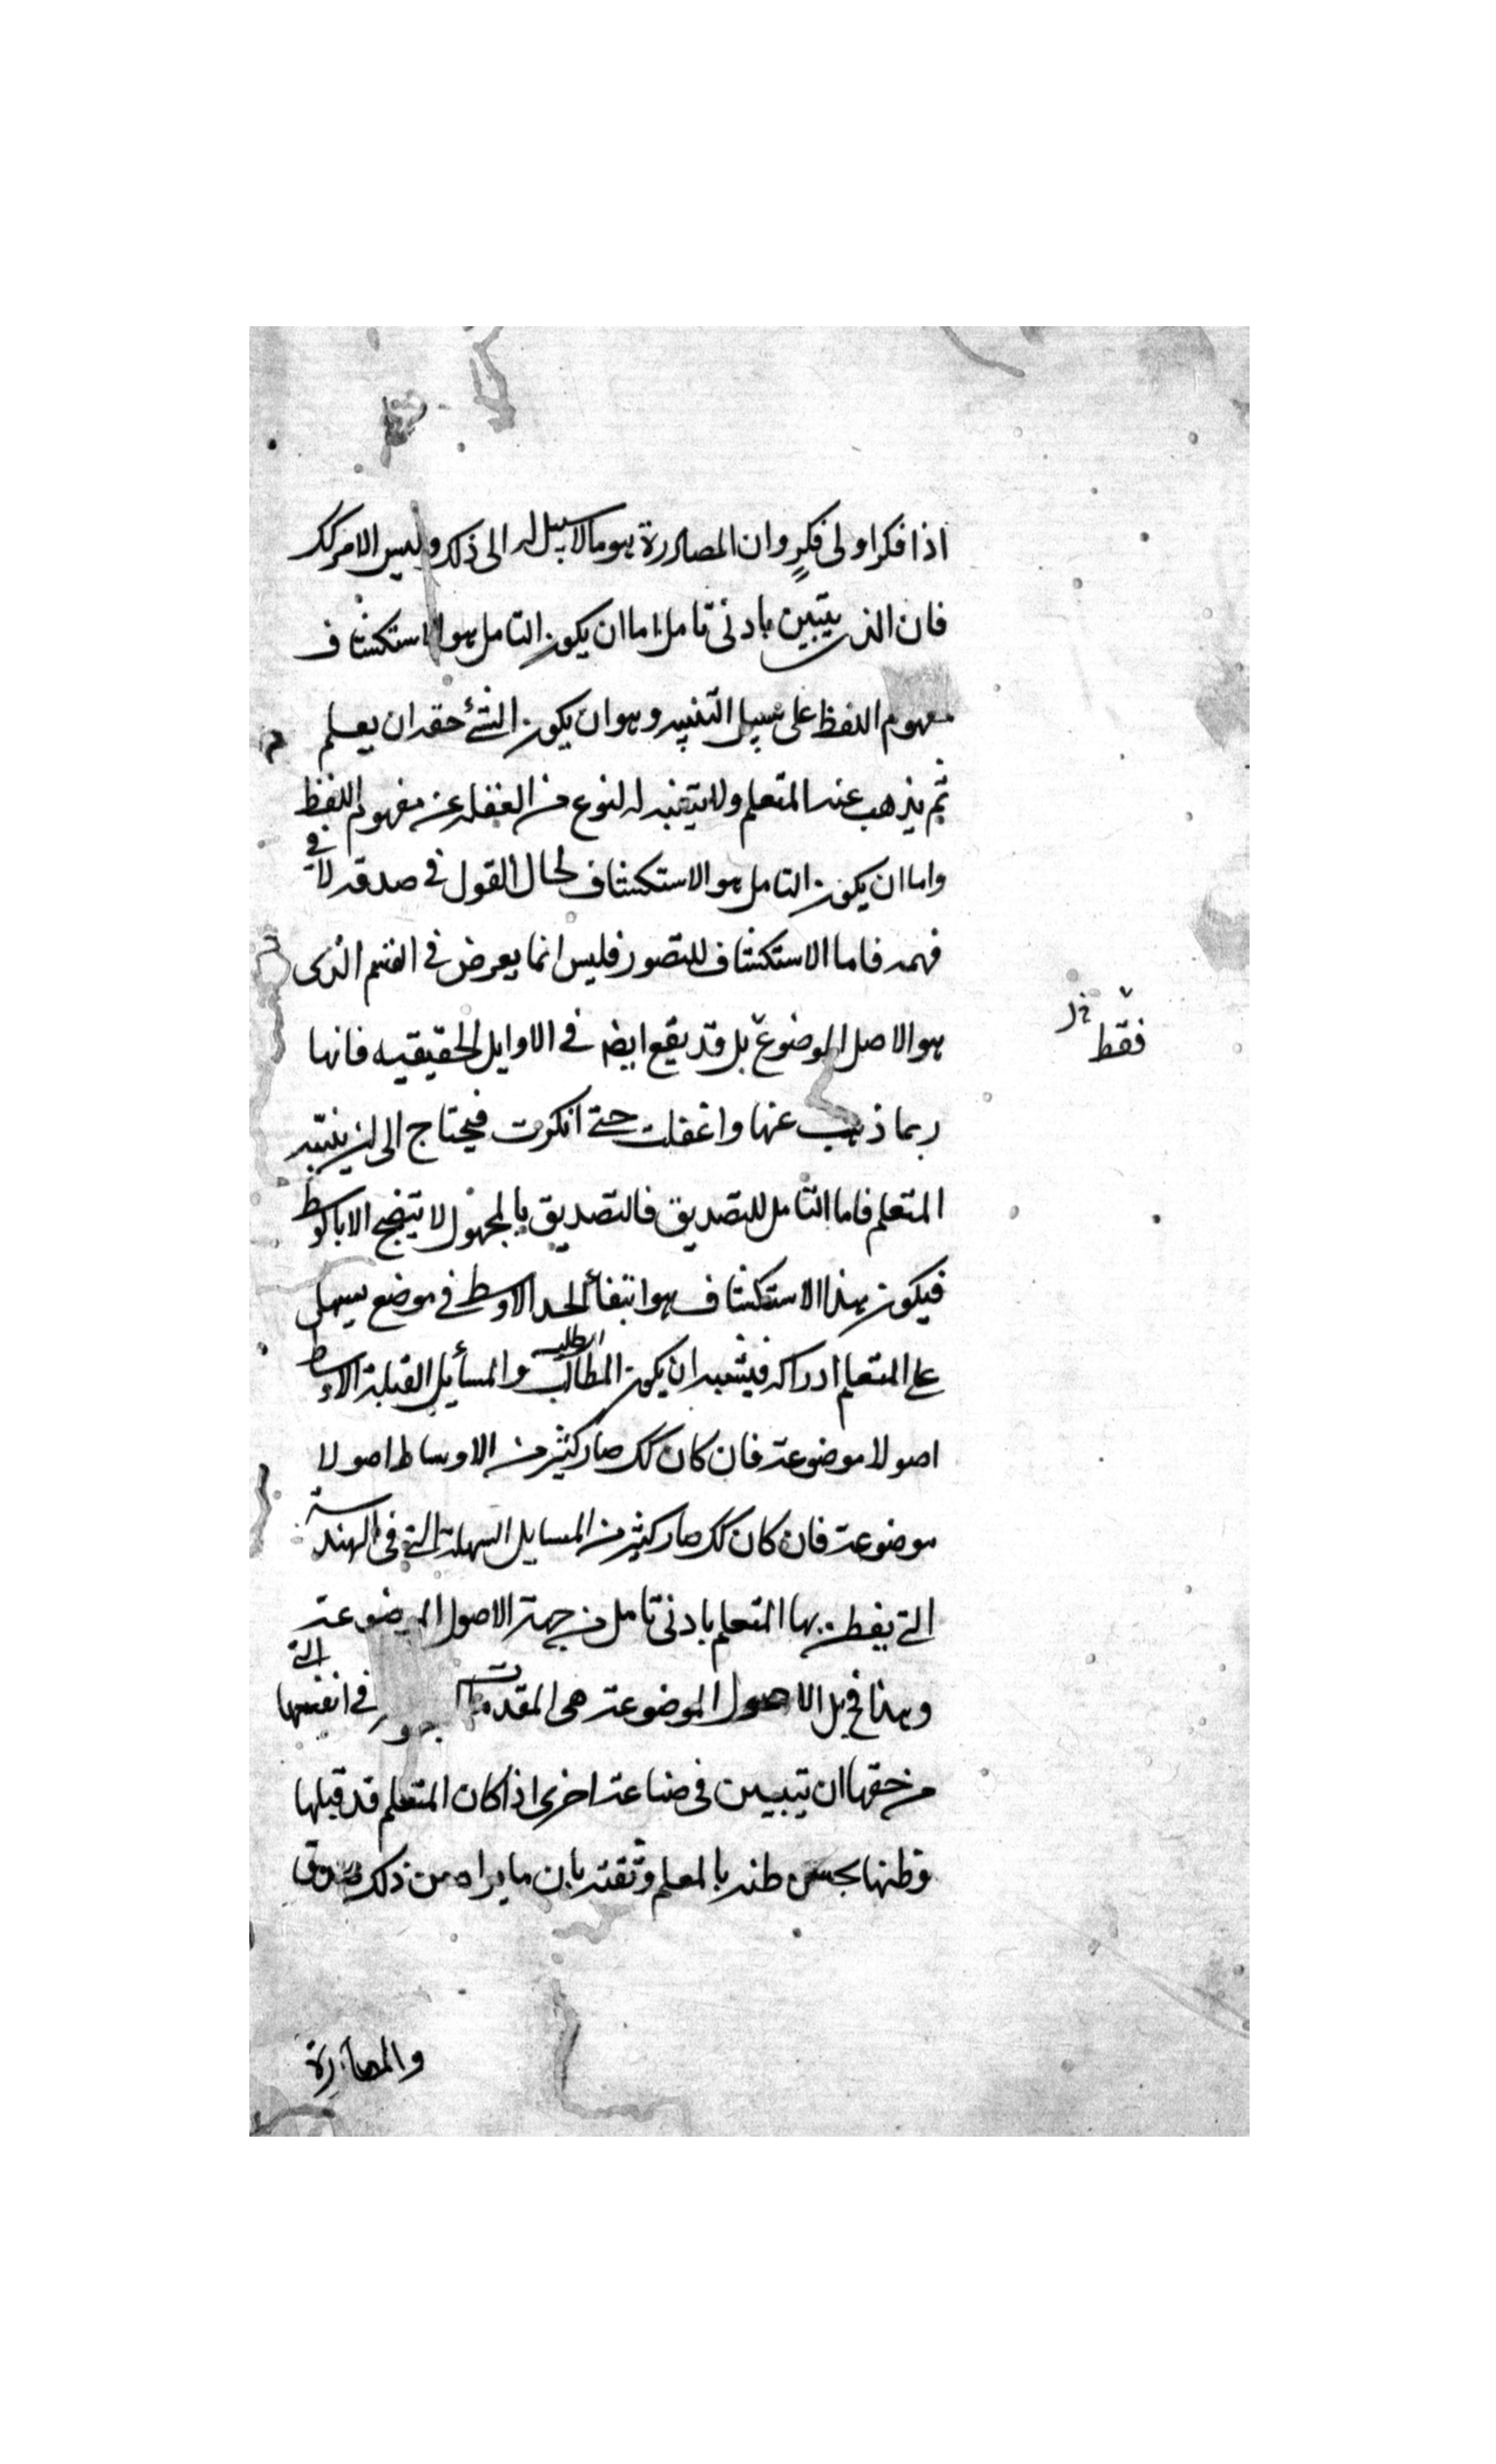 اذا فكر اولى فكر وان المصادرة هو ما لا سبيل له الى ذلك وليس الامر كك
فان الذى يتبين بادنى تامل اما ان يكون التامل هو الاستكشاف
مفهوم اللفظ على سبيل التنبيه وهو ان يكون الشئ حقه ان يعلم
ثم يذهب عنه المتعلم ولا يتنبه له لنوع من الغفلة عن مفهوم اللفظ
واما ان يكون التامل هو الاستكشاف لحال القول فى صدقه لا فى
فهمه فاما الاستكشاف للتصور فليس انما يعرض فى القسم الذى
هو الاصل الموضوع بل قد يقع ايضا فى الاوايل الحقيقيه فانها
فقط
ربما ذهب عنها واغفلت حتى انكرت فيحتاج الى ان ينبه
المتعلم فاما التامل للتصديق فالتصديق بالمجهول لا يتضح الا باوسط
فيكون هذا الاستكشاف هو ابتغاء الحد الاوسط فى موضع يسهل
على المتعلم ادراكه فيشبه ان يكون المطالب والمسأيل القبلة الاوساط
اصولا موضوعة فان كان كك صار كثير من الاوساط اصولا
موضوعة فان كان كك صار كثير من المسايل السهلة التى فى الهندسة
التى يفطن بها المتعلم بادنى تامل من جهة الاصول الموضوعة
وهذا بل الاصول الموضوعة هى المقدمات التى فى انفسها
من حقها ان تبين فى صناعة اخرى اذا كان المتعلم قد قبلها
وظنها بحسن ظنه بالمعلم وثقته بان ما يراه من ذلك صدق
والمصادرة